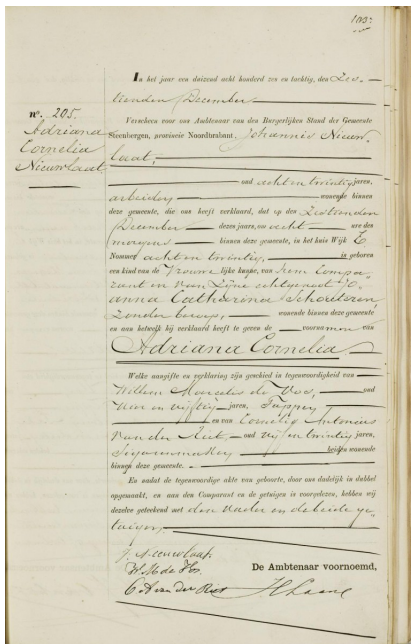 100.
In het jaar een duizend acht honderd zes en tachtig, den Zes-
tienden December
Verscheen voor ons Ambtenaar van den Burgerlijken Stand der Gemeente
Steenbergen, provincie Noordbrabant, Johannis Nieuw-
laat,
oud acht en twintig jaren,
arbeider wonende binnen
deze gemeente, die ons heeft verklaard, dat op den Zestienden
December dezes jaars, des acht ure des
morgens binnen deze gemeente, in het huis Wijk E
Nommer acht en twintig, is geboren
een kind van de Vrouwelijke kunne, van hem Compa-
rant en van zijne echtgenoot Jo-
anna Catharina Schouteren
zonder beroep, wonende binnen deze gemeente
en aan hetwelk hij verklaard heeft te geven de voornamen van
Adriana Cornelia
Welke aangifte en verklaring zijn geschied in tegenwoordigheid van
Willem Marcelis de Vos, oud
vier en vijftig jaren, Tapper,
en van Cornelis Antonius
van der Riet, oud vijf en twintig jaren,
Sigarenmaker beiden wonende
binnen deze gemeente.
En nadat de tegenwoordige akte van geboorte, door ons dadelijk in dubbel
opgemaakt, en aan den Comparant en de getuigen is voorgelezen, hebben wij
dezelve geteekend met den vader en de beide ge-
tuigen.
J. Nieuwlaat
W. M. de Vos
C A van der Riet
De Ambtenaar voornoemd,
nº. 205.
Adriana
Cornelia
Nieuwlaat